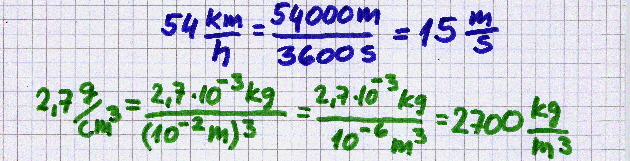 54 km/h = 54000m/3600s = 15 m/s
2,7 g/cm³ = 2,7·10⁻³kg/(10⁻²m)³ = 2,7·10⁻³kg/10⁻⁶m³ = 2700 kg/m³